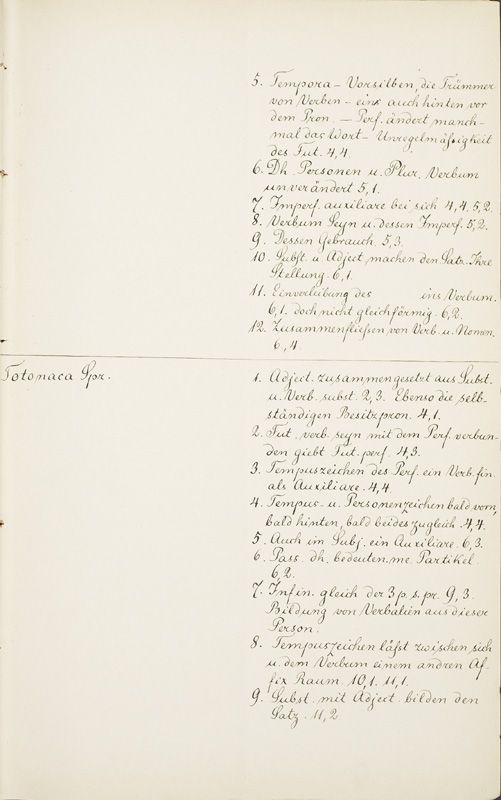 5. Tempora – Vorsilben, die Trümmer
von Verben – eins auch hinten vor
dem Pron. – Perf. ändert manch-
mal das Wort – Unregelmäßigkeit
des Fut. 4,4.
6. Dh. Personen u. Plur. Verbum
unverändert 5,1.
7. Imperf. auxiliare bei sich 4,4. 5,2.
8. Verbum Seyn u. dessen Imperf. 5,2.
9. Dessen Gebrauch. 5,3.
10. Subst. u. Adject. machen den Satz. Ihre
Stellung. 6,1.
11. Einverleibung des ins Verbum.
6,1. doch nicht gleichförmig. 6,2.
12. Zusammenfließen von Verb. u. Nomen.
6,4.
Totonaca Spr.
1. Adject. zusammengesetzt aus Subst.
u. Verb. subst. 2,3. Ebenso die selb-
ständigen Besitzpron. 4,1.
2. Fut. verb. seyn mit dem Perf. verbun-
den giebt Fut. perf. 4,3.
3. Tempuszeichen des Perf. ein Verb. fin.
als Auxiliare. 4,4.
4. Tempus- u. Personenzeichen bald vorn,
bald hinten, bald beides zugleich. 4,4.
5. Auch im Subj. ein Auxiliare. 6,3.
6. Pass. dh. bedeuten. me. Partikel.
6,2.
7. Infin. gleich der 3 p. s. pr. 9,3.
Bildung von Verbalien aus dieser
Person.
8. Tempuszeichen läßt zwischen sich
u. dem Verbum einem andren Af-
fix Raum. 10,1. 11,1.
9. Subst. mit Adject. bilden den
Satz. 11,2